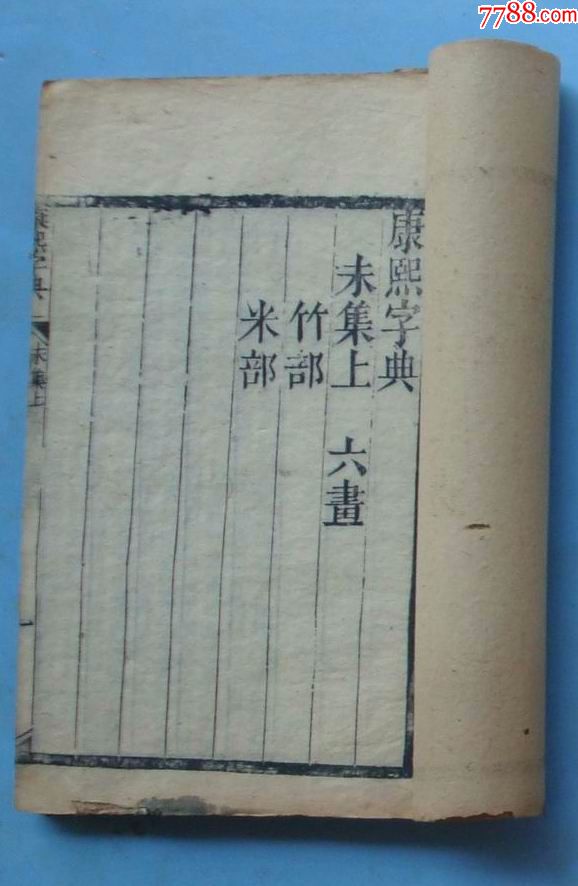 7788.com
康熙字典
未集上 六畫
竹部
米部
康熙字典 未集上
一